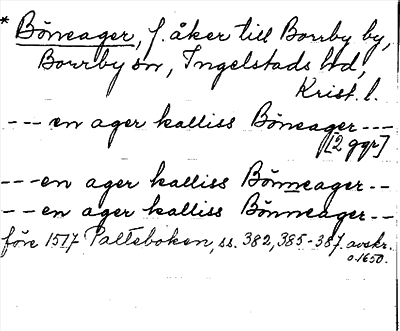 * Böneager, f. åker till Borrby by,
Borrby sn, Ingelstads hd,
Krist. l.
--- en ager kalliss Böneager ---
[2 ggr]
--- en ager kalliss Bönneager --
-- en ager kalliss Bönneager --
före 1517 Palteboken, ss. 382, 385-387. avskr.
o. 1650.